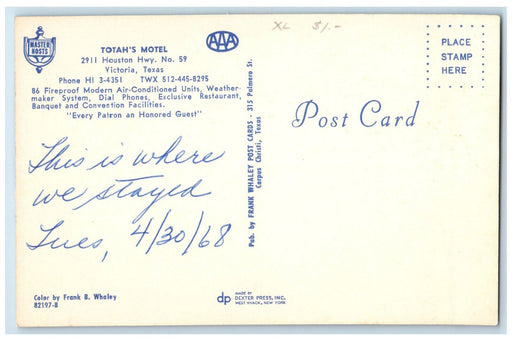 MASTER
HOSTS
TOTAH'S MOTEL
2911 Houston Hwy. No. 59
Victoria, Texas
Phone HI 3-4351 TWX 512-445-8295
86 Fireproof Modern Air-Conditioned Units, Weather-
maker System, Dial Phones, Exclusive Restaurant,
Banquet and Convention Facilities.
"Every Patron an Honored Guest"
This is where
we stayed
Tues, 4/30/68
Color by Frank B. Whaley
82197-B
AAA
XL $1.-
Pub. by FRANK WHALEY POST CARDS - 315 Palmero St.
Corpus Christi, Texas
dp
MADE BY
DEXTER PRESS, INC.
WEST NYACK, NEW YORK
Post Card
PLACE
STAMP
HERE